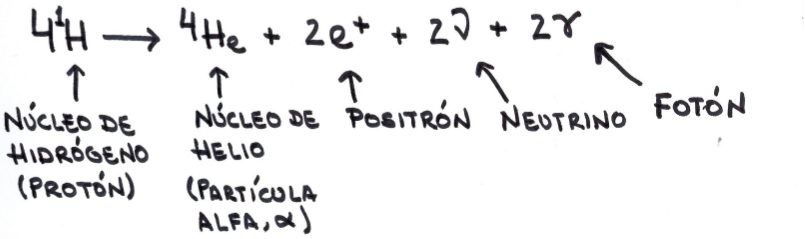 4¹H → ⁴He + 2e⁺ + 2ν + 2γ
NÚCLEO DE
HIDRÓGENO
(PROTÓN)
NÚCLEO DE
HELIO
(PARTÍCULA
ALFA, α)
POSITRÓN
NEUTRINO
FOTÓN